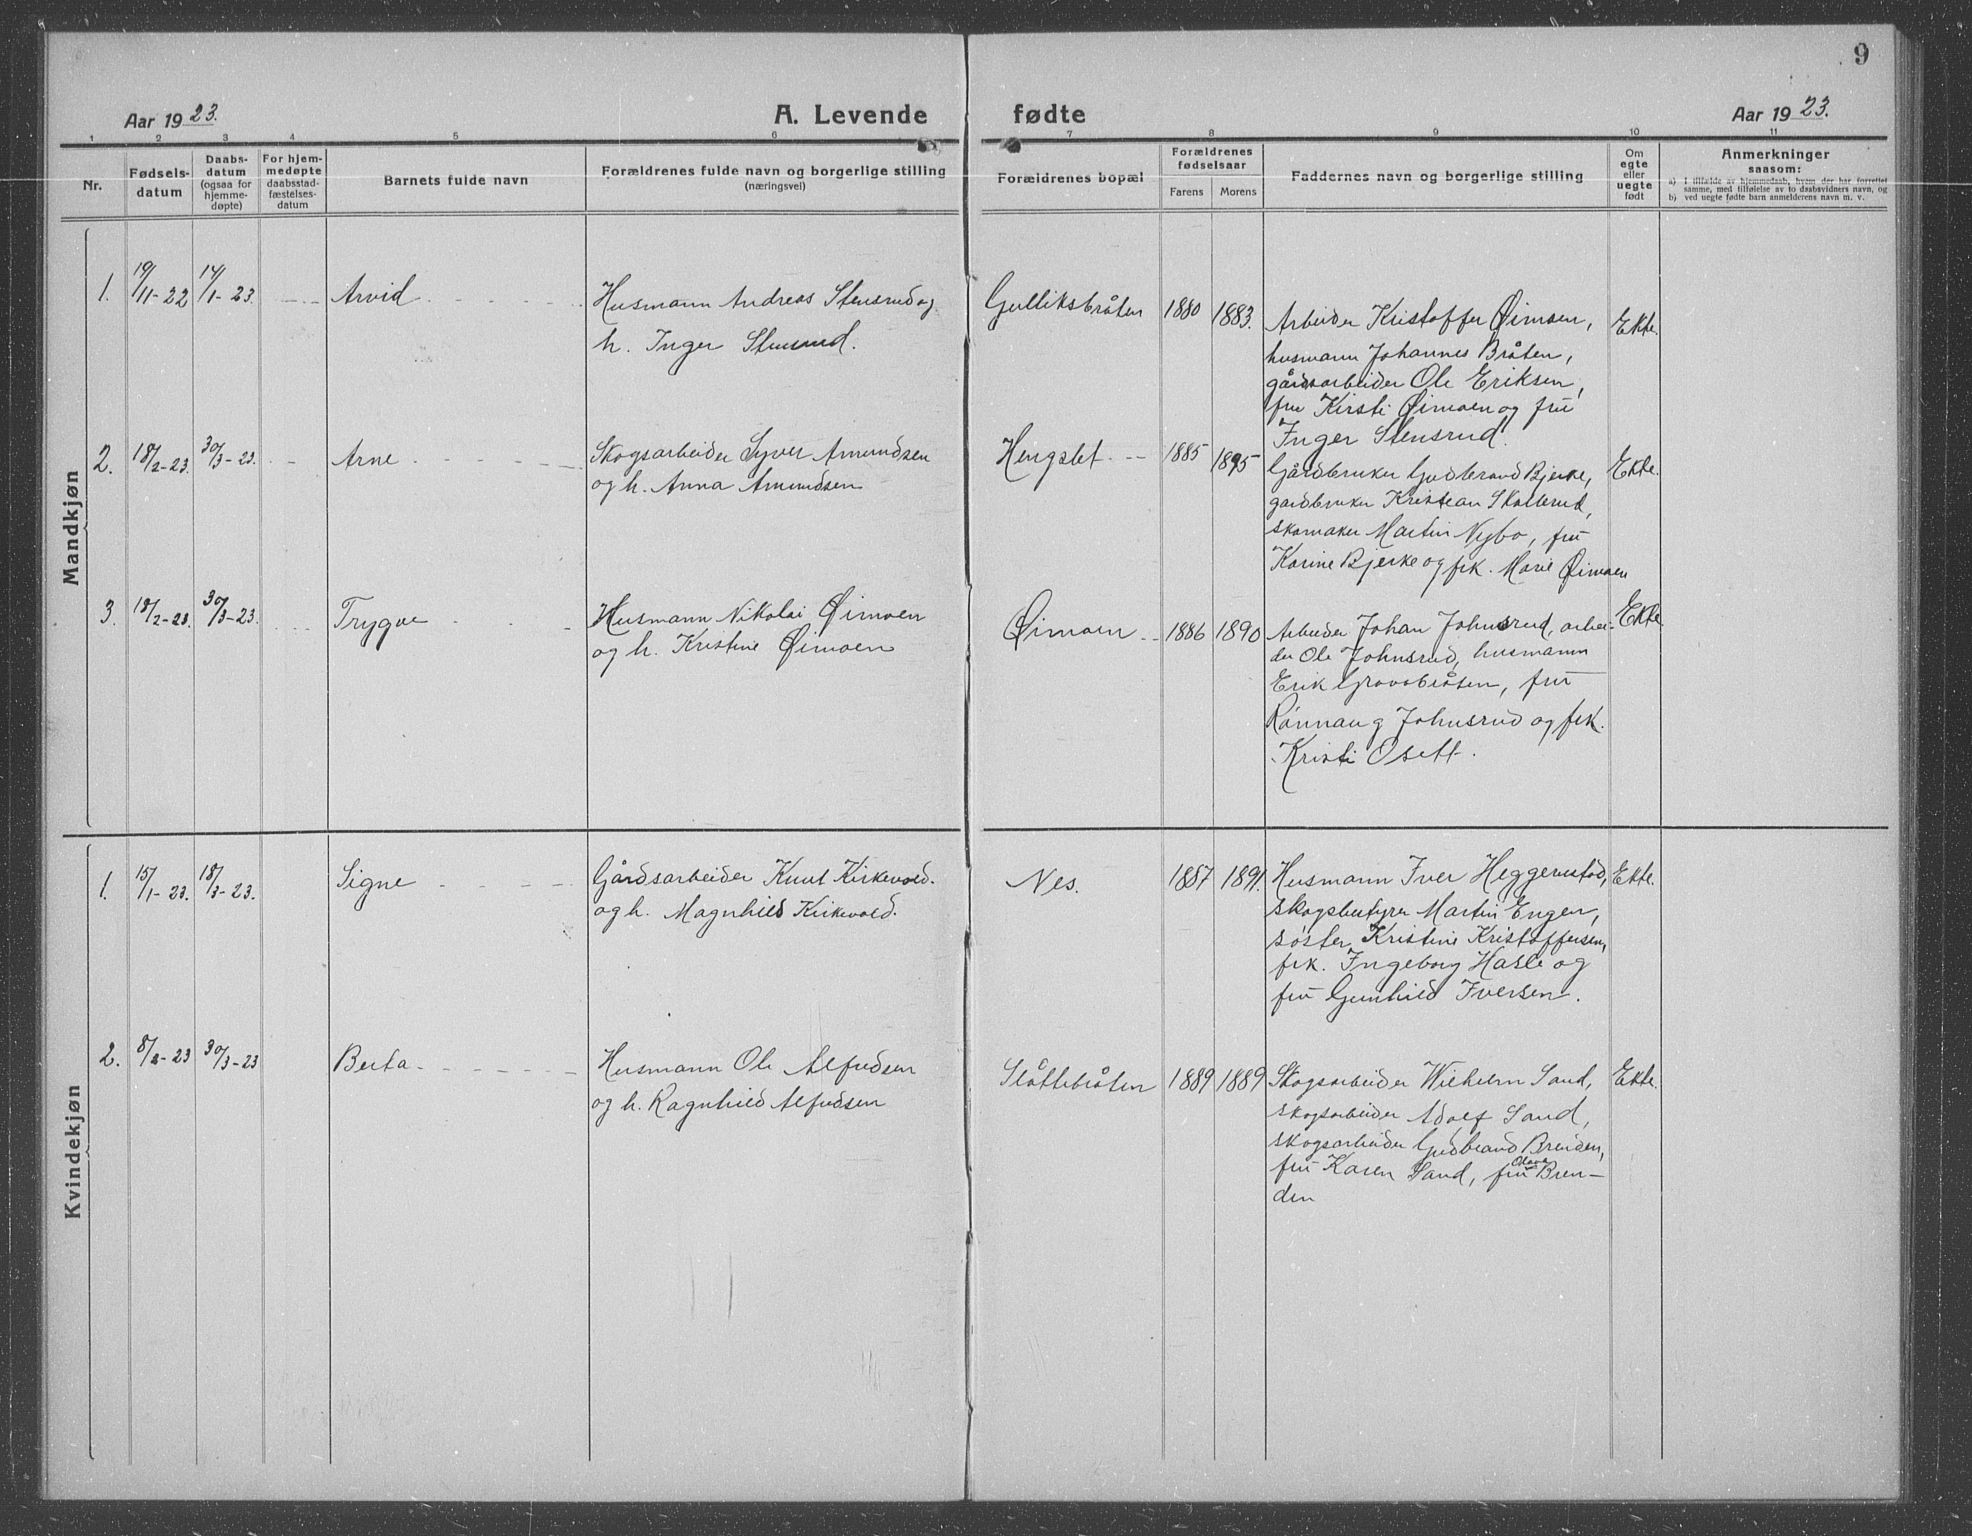 9
Aar 1923.
A. Levende fødte
Aar 1923.
1 2 3 4 5 6 7 8 9 10 11
Nr.
Fødsels-
datum
Daabs-
datum
(ogsaa for
hjemme-
døpte)
For hjem-
medøpte
daabsstad-
fæstelses-
datum
Barnets fulde navn
Forældrenes fulde navn og borgerlige stilling
(næringsvei)
Forældrenes bopæl
Forældrenes
fødselsaar
Farens Morens
Faddernes navn og borgerlige stilling
Om
egte
eller
uegte
født
Anmerkninger
saasom:
a) I tilfælde av hjemmedaab, hvem der har forrettet
samme, med tilføielse av to daabsvidners navn, og
b) ved uegte fødte barn anmelderens navn m. v.
Mandkjøn
1. 19/11-22 14/1-23. Arvid
Husmann Andreas Stensrud og
h. Inger Stensrud.
Gulliksbråten 1880 1883.
Arbeider Kristoffer Øimoen,
husmann Johannes Bråten,
gårdsarbeider Ole Eriksen,
fru Kirsti Øimoen og fru
Inger Stensrud.
Ekte.
2. 18/2-23. 30/3-23. Arne
Skogsarbeider Syver Amundsen
og h. Anna Amundsen
Hengslet 1885 1895
Gårdbruker Gudbrand Bjerke,
gardbruker Kristian Skollerud,
skomaker Martin Nybo, fru
Karine Bjerke og frk. Marie Øimoen
Ekte.
3. 18/2-23. 30/3-23. Trygve
Husmann Nikolai Øimoen
og h. Kristine Øimoen
Øimoen 1886 1890
Arbeider Johan Johnsrud, arbei-
der Ole Johnsrud, husmann
Erik Gravabråten, fru
Rønnaug Johnsrud og frk.
Kristi Osett.
Ekte.
Kvindekjøn
1. 15/1-23. 18/3-23. Signe
Gårdsarbeider Knut Kirkevold.
og h. Magnhild Kirkevold.
Nes. 1887 1891.
Husmann Iver Heggerustad,
skogsbestyrer Martin Engen,
søster Kristine Kristoffersen,
frk. Ingeborg Hasle og
fru Gunhild Iversen.
Ekte.
2. 8/2-23 30/3-23 Berta
Husmann Ole Alfredsen
og h. Ragnhild Alfredsen
Slåttebråten 1889 1889
Skogsarbeider Wilhelm Sand,
skogsarbeider Adolf Sand,
skogsarbeider Gudbrand Brenden,
fru Karen Sand, fru Olave Bren-
den
Ekte.